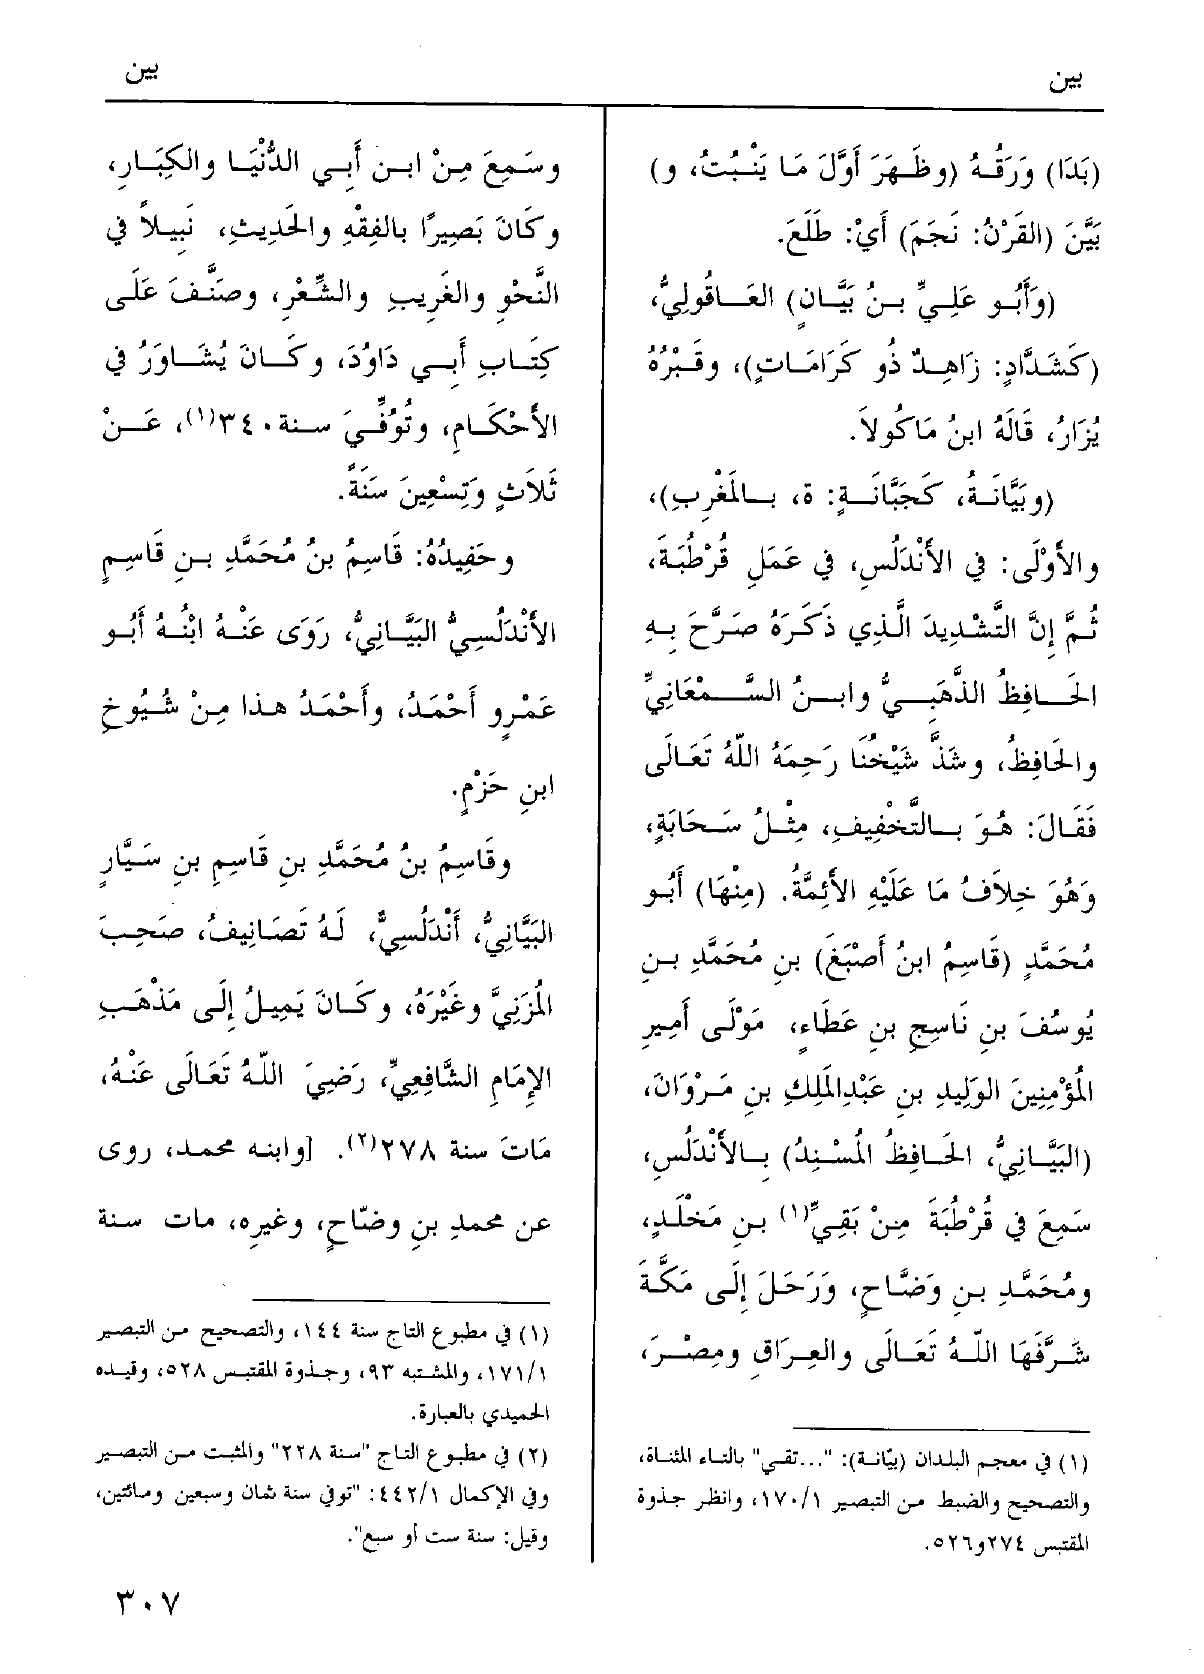 بين
بين
(بَدَا) وَرَقُهُ (وظَهَرَ أَوَّلَ مَا يَنْبُتُ، و)
بَيَّنَ (القَرْنُ: نَجَمَ) أَيْ: طَلَعَ.
(وَأَبُو عَلِيِّ بنُ بَيَّانٍ) العَاقُولِيُّ،
(كَشَدَّادٍ: زَاهِدٌ ذُو كَرَامَاتٍ)، وقَبْرُهُ
يُزَارُ، قَالَهُ ابنُ مَاكُولاَ.
(وبَيَّانَةُ، كَجَبَّانَةٍ: ة، بِالمَغْرِبِ)،
والأَوْلَى: فِي الأَنْدَلُسِ، فِي عَمَلِ قُرْطُبَةَ،
ثُمَّ إِنَّ التَّشْدِيدَ الَّذِي ذَكَرَهُ صَرَّحَ بِهِ
الحَافِظُ الذَّهَبِيُّ وابنُ السَّمْعَانِيِّ
والحَافِظُ، وشَذَّ شَيْخُنَا رَحِمَهُ اللّهُ تَعَالَى
فَقَالَ: هُوَ بِالتَّخْفِيفِ، مِثْلُ سَحَابَةٍ،
وَهُوَ خِلاَفُ مَا عَلَيْهِ الأَئِمَّةُ. (مِنْهَا) أَبُو
مُحَمَّدٍ (قَاسِمُ ابنُ أَصْبَغَ) بنِ مُحَمَّدِ بنِ
يُوسُفَ بنِ نَاسِحِ بنِ عَطَاءٍ، مَوْلَى أَمِيرِ
المُؤْمِنِينَ الوَلِيدِ بنِ عَبْدِالمَلِكِ بنِ مَرْوَانَ،
(البَيَّانِيُّ، الحَافِظُ المُسْنِدُ) بِالأَنْدَلُسِ،
سَمِعَ فِي قُرْطُبَةَ مِنْ بَقِيِّ(١) بنِ مَخْلَدٍ،
ومُحَمَّدِ بنِ وَضَّاحٍ، وَرَحَلَ إِلَى مَكَّةَ
شَرَّفَهَا اللّهُ تَعَالَى والعِرَاقِ ومِصْرَ،
(١) في معجم البلدان (بيّانة): "...تقي" بالتاء المثناة،
والتصحيح والضبط من التبصير ١٧٠/١، وانظر جذوة
المقتبس ٢٧٤و٥٢٦.
وسَمِعَ مِنْ ابنِ أَبِي الدُّنْيَا والكِبَارِ،
وكَانَ بَصِيرًا بِالفِقْهِ والحَدِيثِ، نَبِيلاً فِي
النَّحْوِ والغَرِيبِ والشِّعْرِ، وصَنَّفَ عَلَى
كِتَابِ أَبِي دَاوُدَ، وكَانَ يُشَاوَرُ فِي
الأَحْكَامِ، وتُوُفِّيَ سنة ٣٤٠(١)، عَنْ
ثَلاَثٍ وَتِسْعِينَ سَنَةً.
وحَفِيدُهُ: قَاسِمُ بنُ مُحَمَّدِ بنِ قَاسِمٍ
الأَنْدَلُسِيُّ البَيَّانِيُّ، رَوَى عَنْهُ ابْنُهُ أَبُو
عَمْرٍو أَحْمَدُ، وأَحْمَدُ هذا مِنْ شُيُوخِ
ابنِ حَزْمٍ.
وقَاسِمُ بنُ مُحَمَّدِ بنِ قَاسِمِ بنِ سَيَّارٍ
البَيَّانِيُّ، أَنْدَلُسِيٌّ، لَهُ تَصَانِيفُ، صَحِبَ
المُزَنِيَّ وغَيْرَهُ، وكَانَ يَمِيلُ إِلَى مَذْهَبِ
الإِمَامِ الشَّافِعِيِّ، رَضِيَ اللّهُ تَعَالَى عَنْهُ،
مَاتَ سنة ٢٧٨(٢). [وابنه محمد، روى
عن محمدِ بنِ وضّاحٍ، وغيرِه، مات سنة
(١) في مطبوع التاج سنة ١٤٤، والتصحيح من التبصير
١٧١/١، والمشتبه ٩٣، وجذوة المقتبس ٥٢٨، وقيده
الحميدي بالعبارة.
(٢) في مطبوع التاج "سنة ٢٢٨" والمثبت من التبصير
وفي الإكمال ٤٤٢/١: "توفي سنة ثمان وسبعين ومائتين،
وقيل: سنة ست أو سبع".
٣٠٧